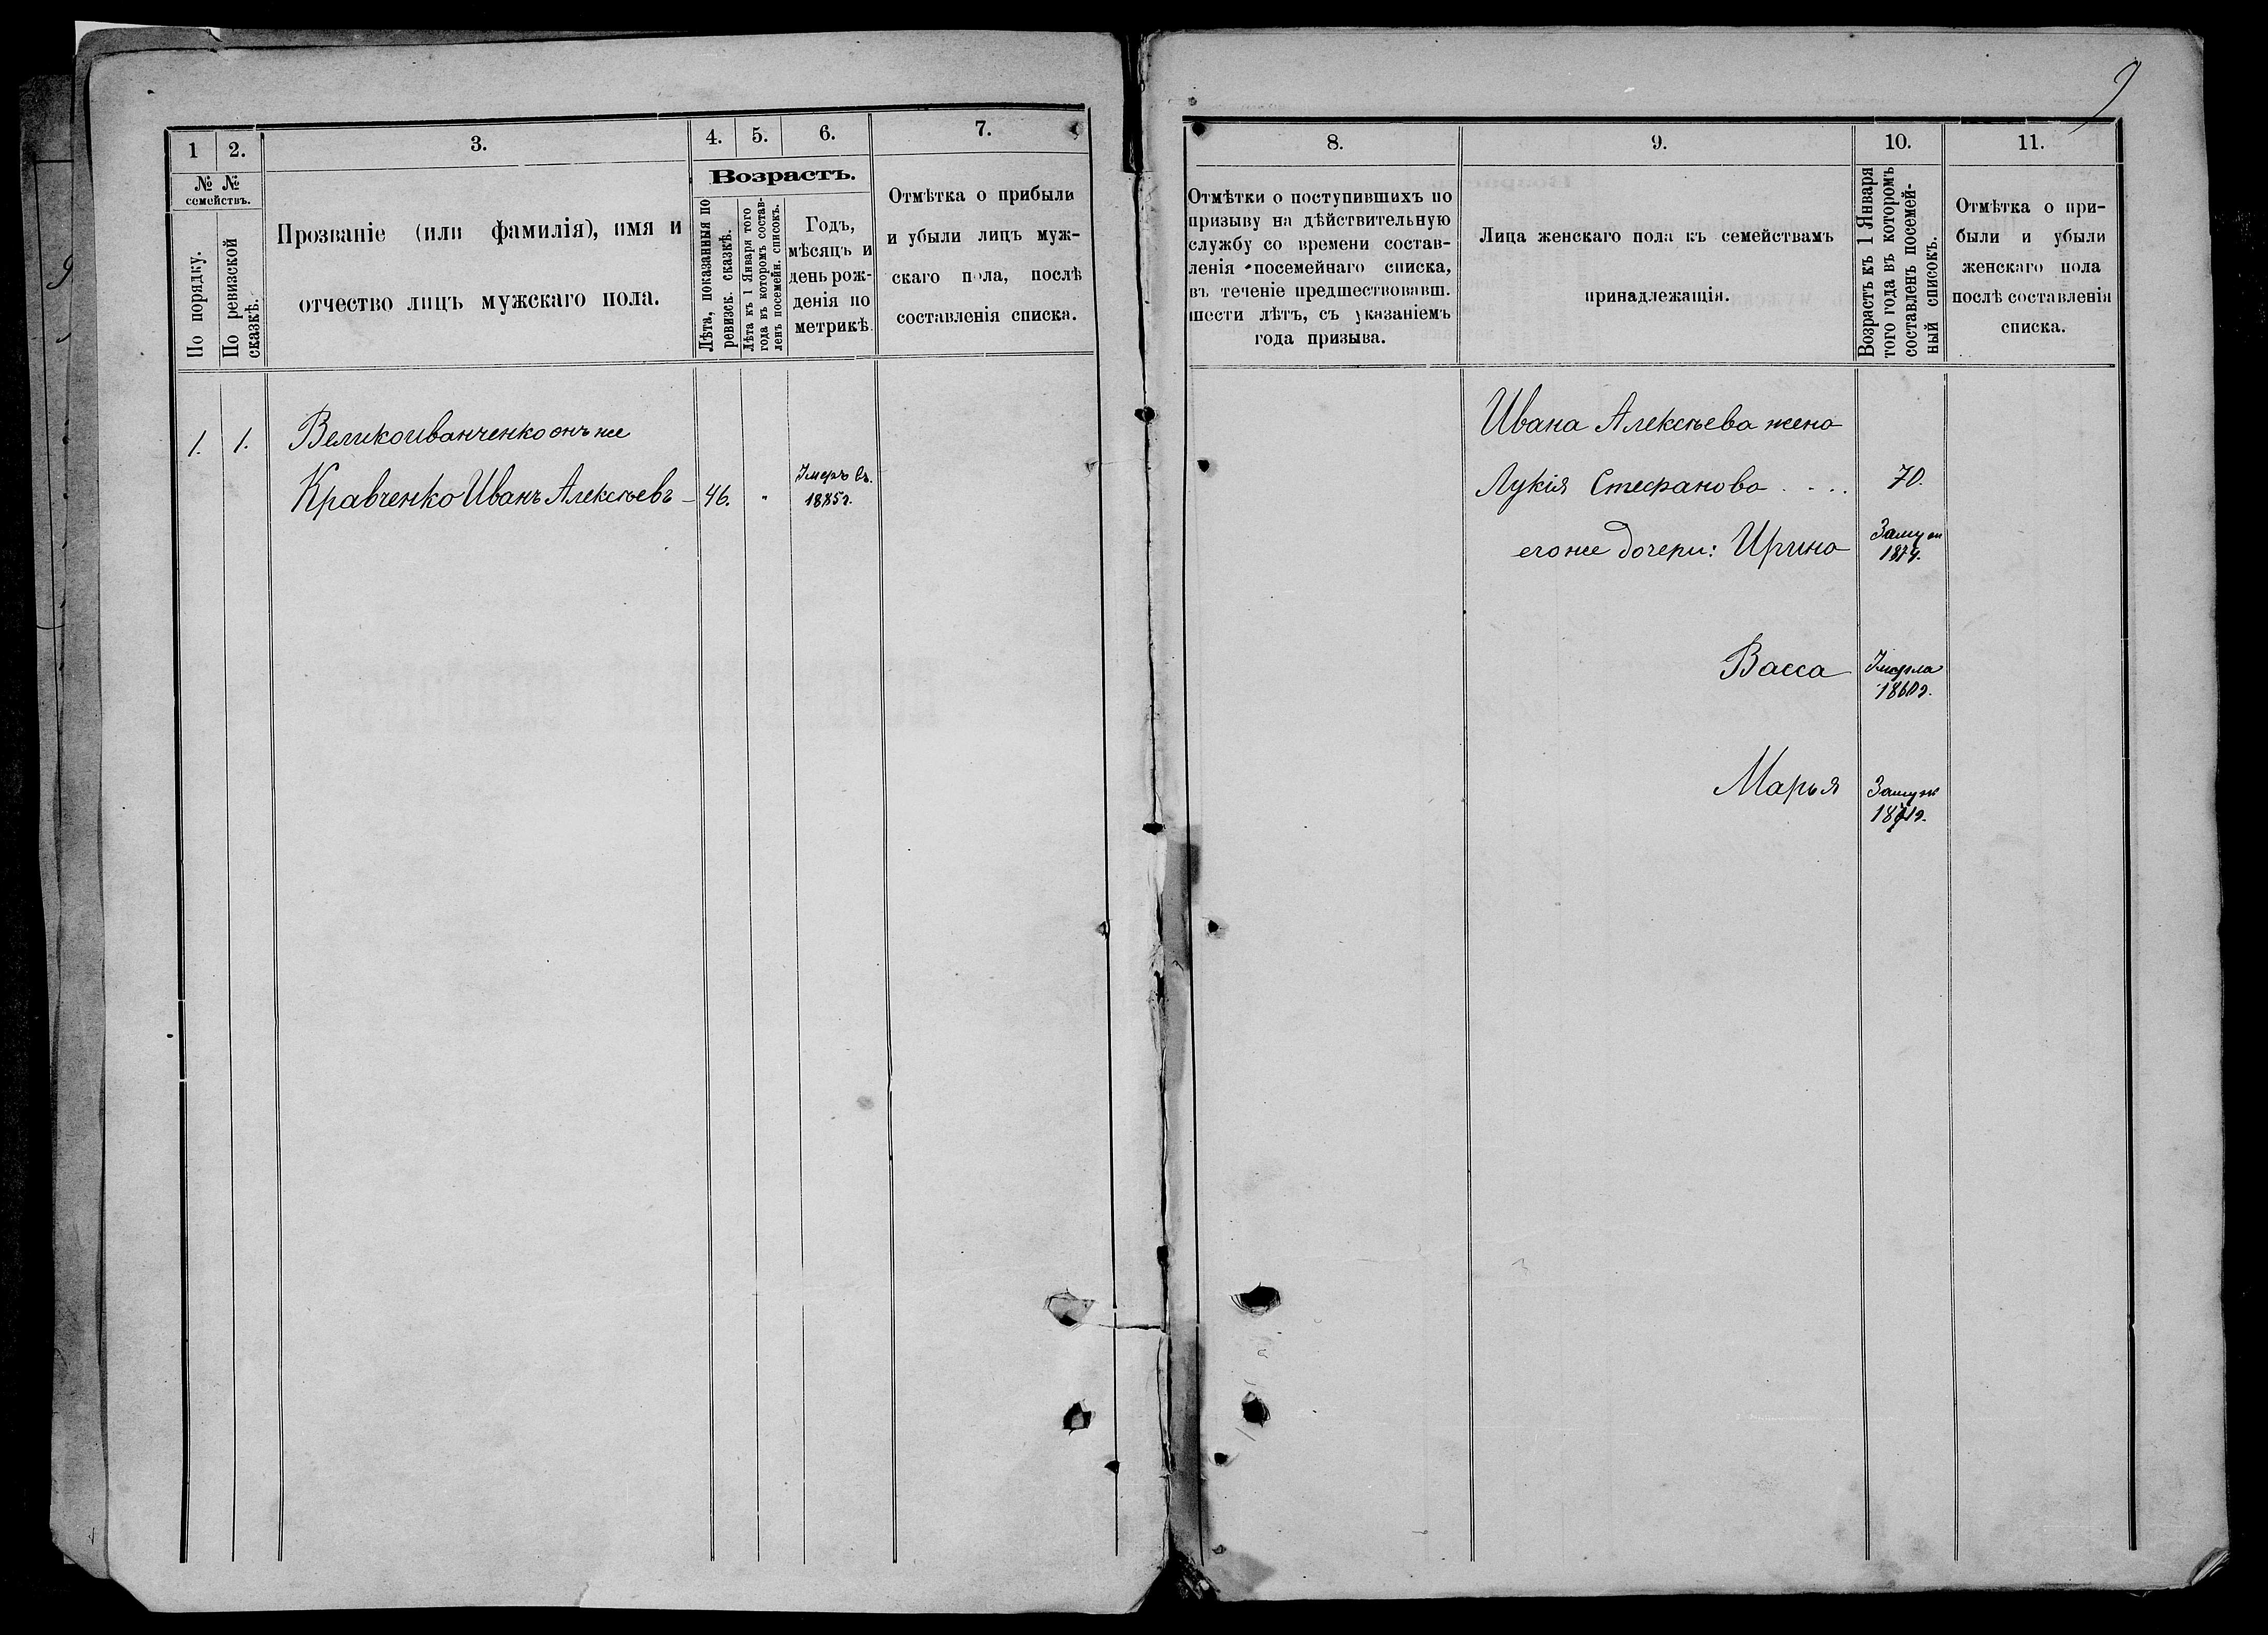 9
1
2.
3.
4.
5.
6.
7.
№ №
семействъ.
По порядку.
По ревизской
сказкѣ.
Прозваніе (или фамилія), имя и
отчество лицъ мужскаго пола.
Возрастъ.
Лѣта, показанныя по
ревизск. сказкѣ.
Лѣта къ 1 Января того
года въ которомъ состав-
ленъ посемейн. списокъ.
Годъ,
мѣсяцъ и
день рож-
денія по
метрикѣ.
Отмѣтка о прибыли
и убыли лицъ муж-
скаго пола, послѣ
составленія списка.
1.
1.
Великоиванченко онъ же
Кравченко Иванъ Алексѣевъ
46.
"
Умеръ въ
1885г.
8.
9.
10.
11.
Отмѣтки о поступившихъ по
призыву на дѣйствительную
службу со времени состав-
ленія посемейнаго списка,
въ теченіе предшествовавш.
шести лѣтъ, съ указаніемъ
года призыва.
Лица женскаго пола къ семействамъ
принадлежащія.
Возрастъ къ 1 Января
того года въ которомъ
составленъ посемей-
ный списокъ.
Отмѣтка о при-
были и убыли
женскаго пола
послѣ составленія
списка.
Ивана Алексѣева жена
Лукія Стефанова . . . .
70.
его же дочери: Ирина
Замуж
Васса
Умерла
1860г.
Марья
Замуж